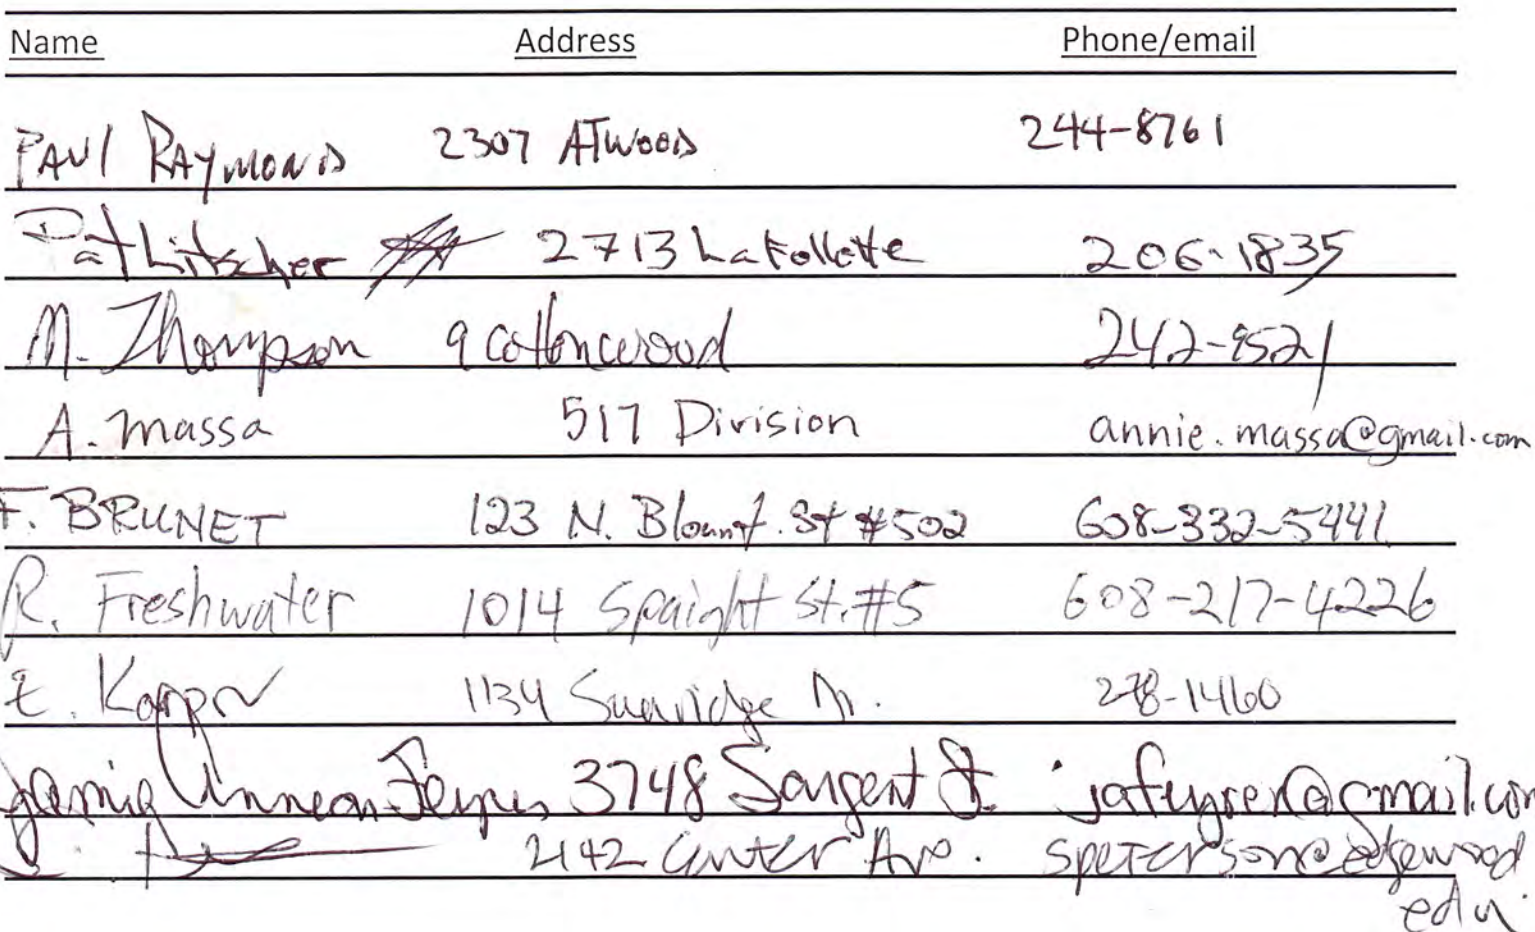 Name Address Phone/email
PAUL RAYMOND 2307 ATWOOD 244-8761
Pat Litscher 2713 LaFollette 206-1835
M. Thompson 9 Cottonwood 242-9521
A. massa 517 Division annie.massa@gmail.com
F. BRUNET 123 N. Blount. St #502 608-332-5441
R. Freshwater 1014 Spaight St. #5 608-217-4226
E. 1134 Sunridge Dr. 278-1460
3748 Sargent St.
S. 2142 Center Ave. speterson@edgewood
edu